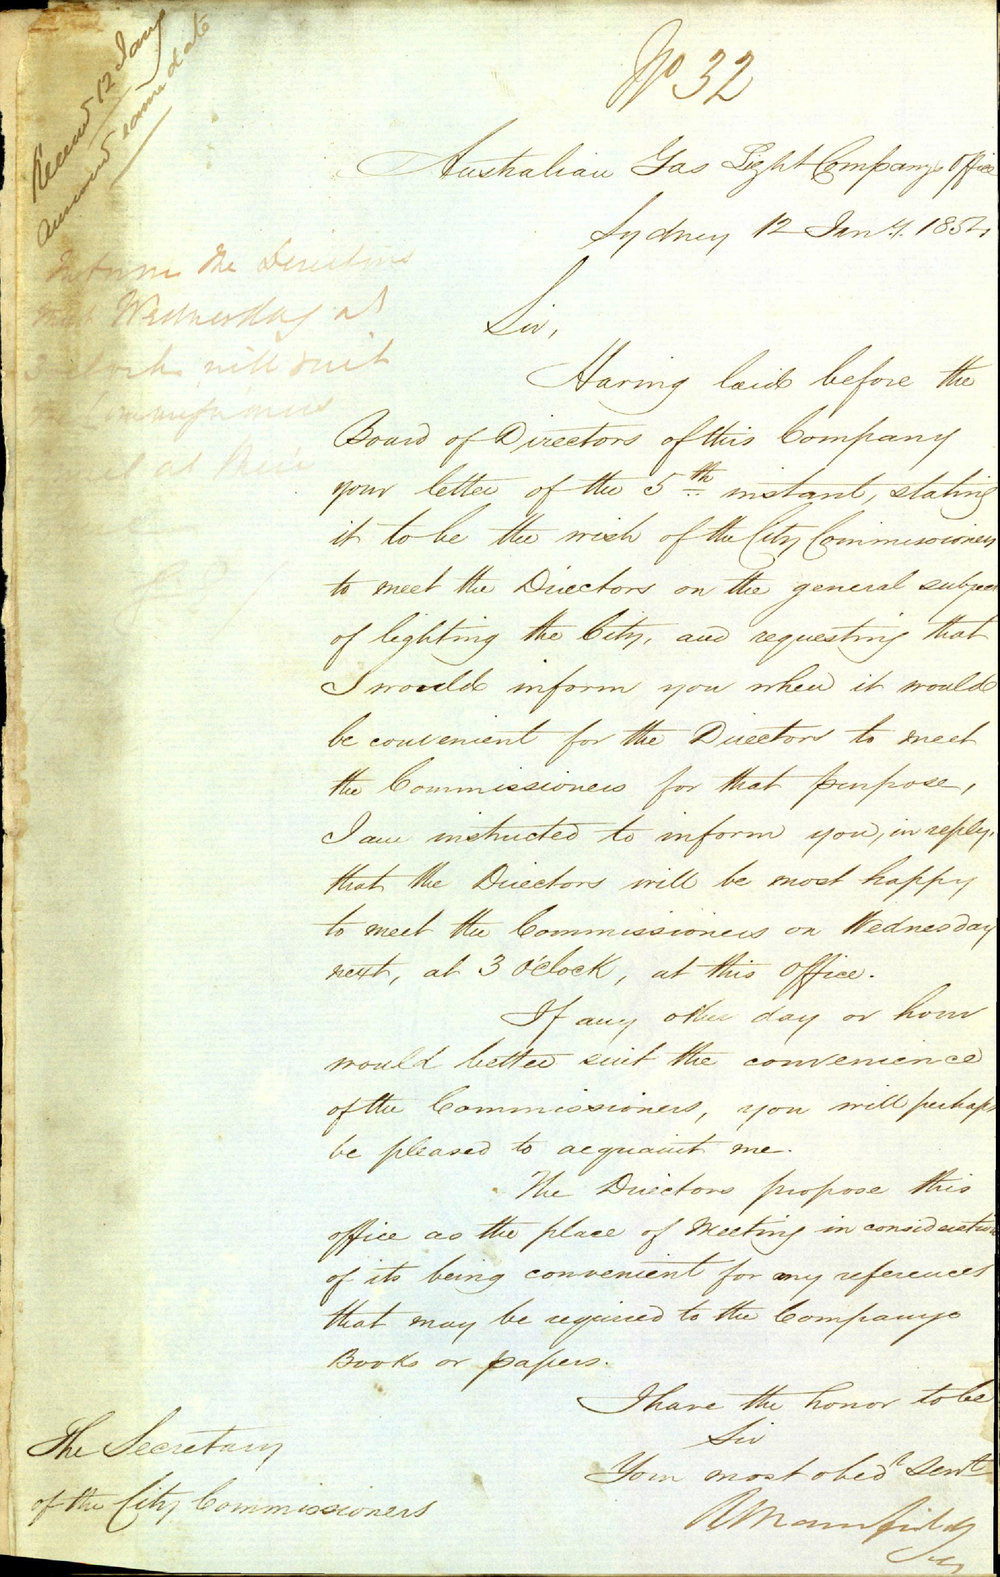 No 32
Received 12 Jany
answered same date
Australian Gas Light Company's Office
Sydney 12 Jany. 1854
Inform the Directors
that Wednesday at
3 o'clock will suit
the Commissioners
at their
Sir,
Having laid before the
Board of Directors of this Company
your letter of the 5th instant, stating
it to be the wish of the City Commissioners
to meet the Directors on the general subject
of lighting the City, and requesting that
I would inform you when it would
be convenient for the Directors to meet
the Commissioners for that purpose,
I am instructed to inform you, in reply,
that the Directors will be most happy
to meet the Commissioners on Wednesday
next, at 3 o'clock, at this office.
If any other day or hour
would better suit the convenience
of the Commissioners, you will perhaps
be pleased to acquaint me.
The Directors propose this
office as the place of Meeting in consideration
of its being convenient for any references
that may be required to the Companys
Books or papers.
I have the honor to be
Sir
Your most obedt Servt
R Mansfield
Secy
The Secretary
of the City Commissioners